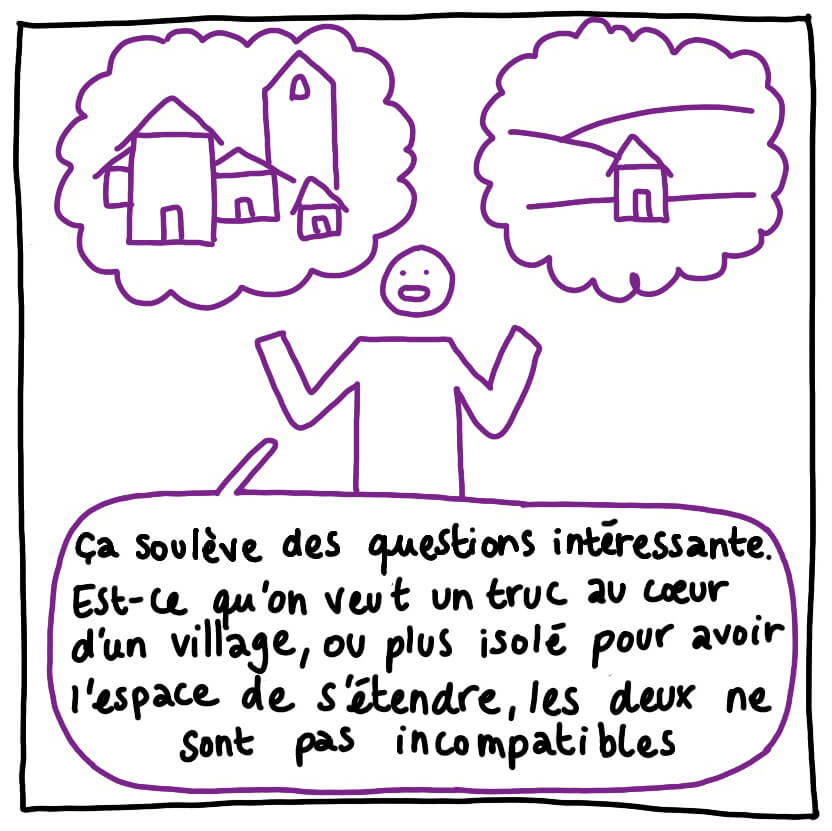 ça soulève des questions intéressante.
Est-ce qu'on veut un truc au cœur
d'un village, ou plus isolé pour avoir
l'espace de s'étendre, les deux ne
sont pas incompatibles